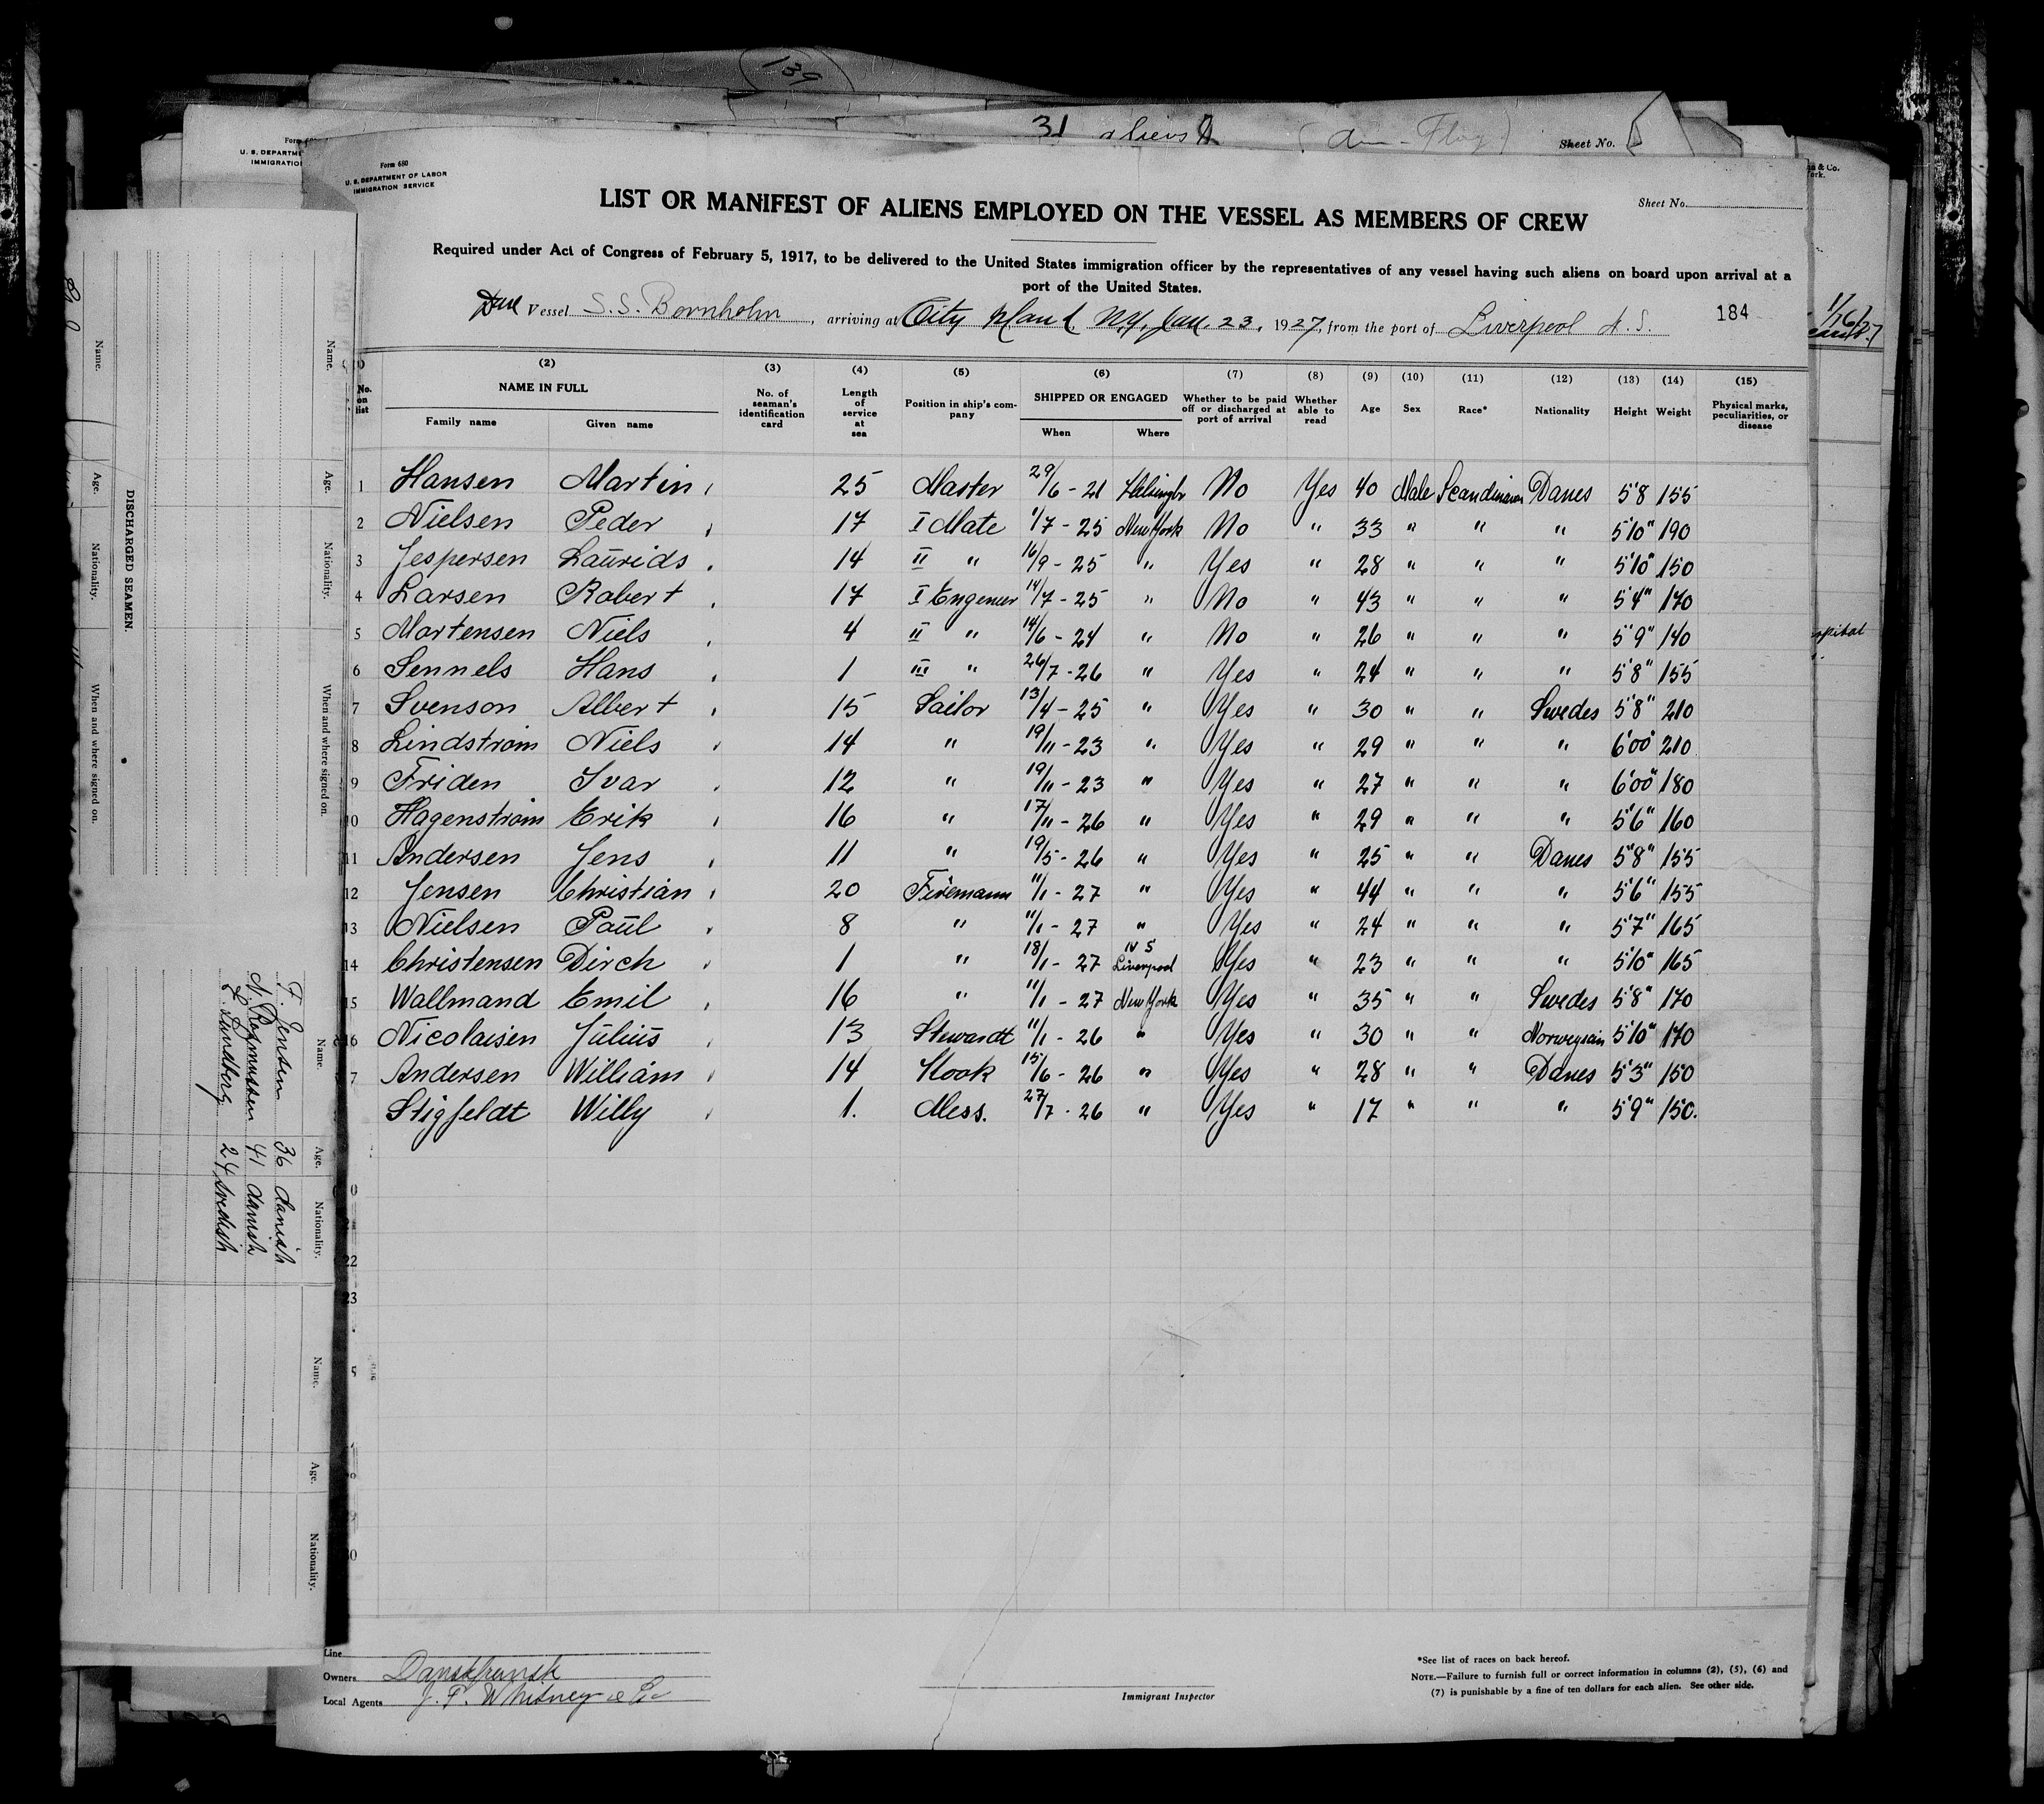 139
31 aliens
Sheet No.
Form 680
U. S. DEPARTMENT OF LABOR
IMMIGRATION SERVICE
LIST OR MANIFEST OF ALIENS EMPLOYED ON THE VESSEL AS MEMBERS OF CREW
Sheet No.
Required under Act of Congress of February 5, 1917, to be delivered to the United States immigration officer by the representatives of any vessel having such aliens on board upon arrival at a
port of the United States.
Vessel S.S. Bornholm, arriving at City Island N.Y. Jan. 23, 1927, from the port of Liverpool N.S. 184
(2) (3) (4) (5) (6) (7) (8) (9) (10) (11) (12) (13) (14) (15)
No. on list NAME IN FULL Family name Given name No. of seaman's identification card Length of service at sea Position in ship's company SHIPPED OR ENGAGED When Where Whether to be paid off or discharged at port of arrival Whether able to read Age Sex Race* Nationality Height Weight Physical marks, peculiarities, or disease
1 Hansen Martin 25 Master 29/6 - 21 No Yes 40 Male Scandinavian Danes 5'8 155
2 Nielsen Peder 17 I Mate 1/7 - 25 New York No " 33 " " " 5'10" 190
3 Jespersen Laurids 14 II " 16/9 - 25 " Yes " 28 " " " 5'10" 150
4 Larsen Robert 17 I Engeneer 14/7 - 25 " No " 43 " " " 5'4" 170
5 Martensen Niels 4 II " 14/6 - 24 " No " 26 " " " 5'9" 140
6 Sennels Hans 1 III " 26/7 - 26 " Yes " 24 " " " 5'8" 155
7 Svenson Albert 15 Sailor 13/4 - 25 " Yes " 30 " " Swedes 5'8" 210
8 Lindstrøm Niels 14 " 19/11 - 23 " Yes " 29 " " " 6'00" 210
9 Friden Ivar 12 " 19/11 - 23 " Yes " 27 " " " 6'00" 180
10 Hagenstrøm Erik 16 " 17/11 - 26 " Yes " 29 " " " 5'6" 160
11 Andersen Jens 11 " 19/5 - 26 " Yes " 25 " " Danes 5'8" 155
12 Jensen Christian 20 Firemann 11/1 - 27 " Yes " 44 " " " 5'6" 155
13 Nielsen Paul 8 " 11/1 - 27 " Yes " 24 " " " 5'7" 165
14 Christensen Dirch 1 " 18/1 - 27 Liverpool N S Yes " 23 " " " 5'10" 165
15 Wallmand Emil 16 " 11/1 - 27 New York Yes " 35 " " Swedes 5'8" 170
16 Nicolaisen Julius 13 Stewardt 11/1 - 26 " Yes " 30 " " Norwegsian 5'10" 170
7 Andersen William 14 Kook 15/6 - 26 " Yes " 28 " " Danes 5'3" 150
Stigfeldt Willy 1. Mess. 27/7 - 26 " Yes " 17 " " " 5'9" 150.
22
23
Line
Owners Danskfransk
Local Agents J. P. Whitney & Co
Immigrant Inspector
*See list of races on back hereof.
NOTE.—Failure to furnish full or correct information in columns (2), (5), (6) and
(7) is punishable by a fine of ten dollars for each alien. See other side.
DISCHARGED SEAMEN.
Name. Age. Nationality. When and where signed on.
Name. Age. Nationality. When and where signed on.
Name. Age. Nationality.
F. Jensen 36 danish
N. Rasmussen 41 danish
E. Lundberg 24 svedish
Name. Age. Nationality.